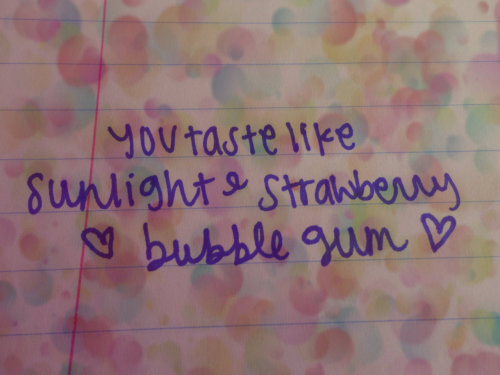 you taste like
sunlight & strawberry
♡ bubble gum ♡